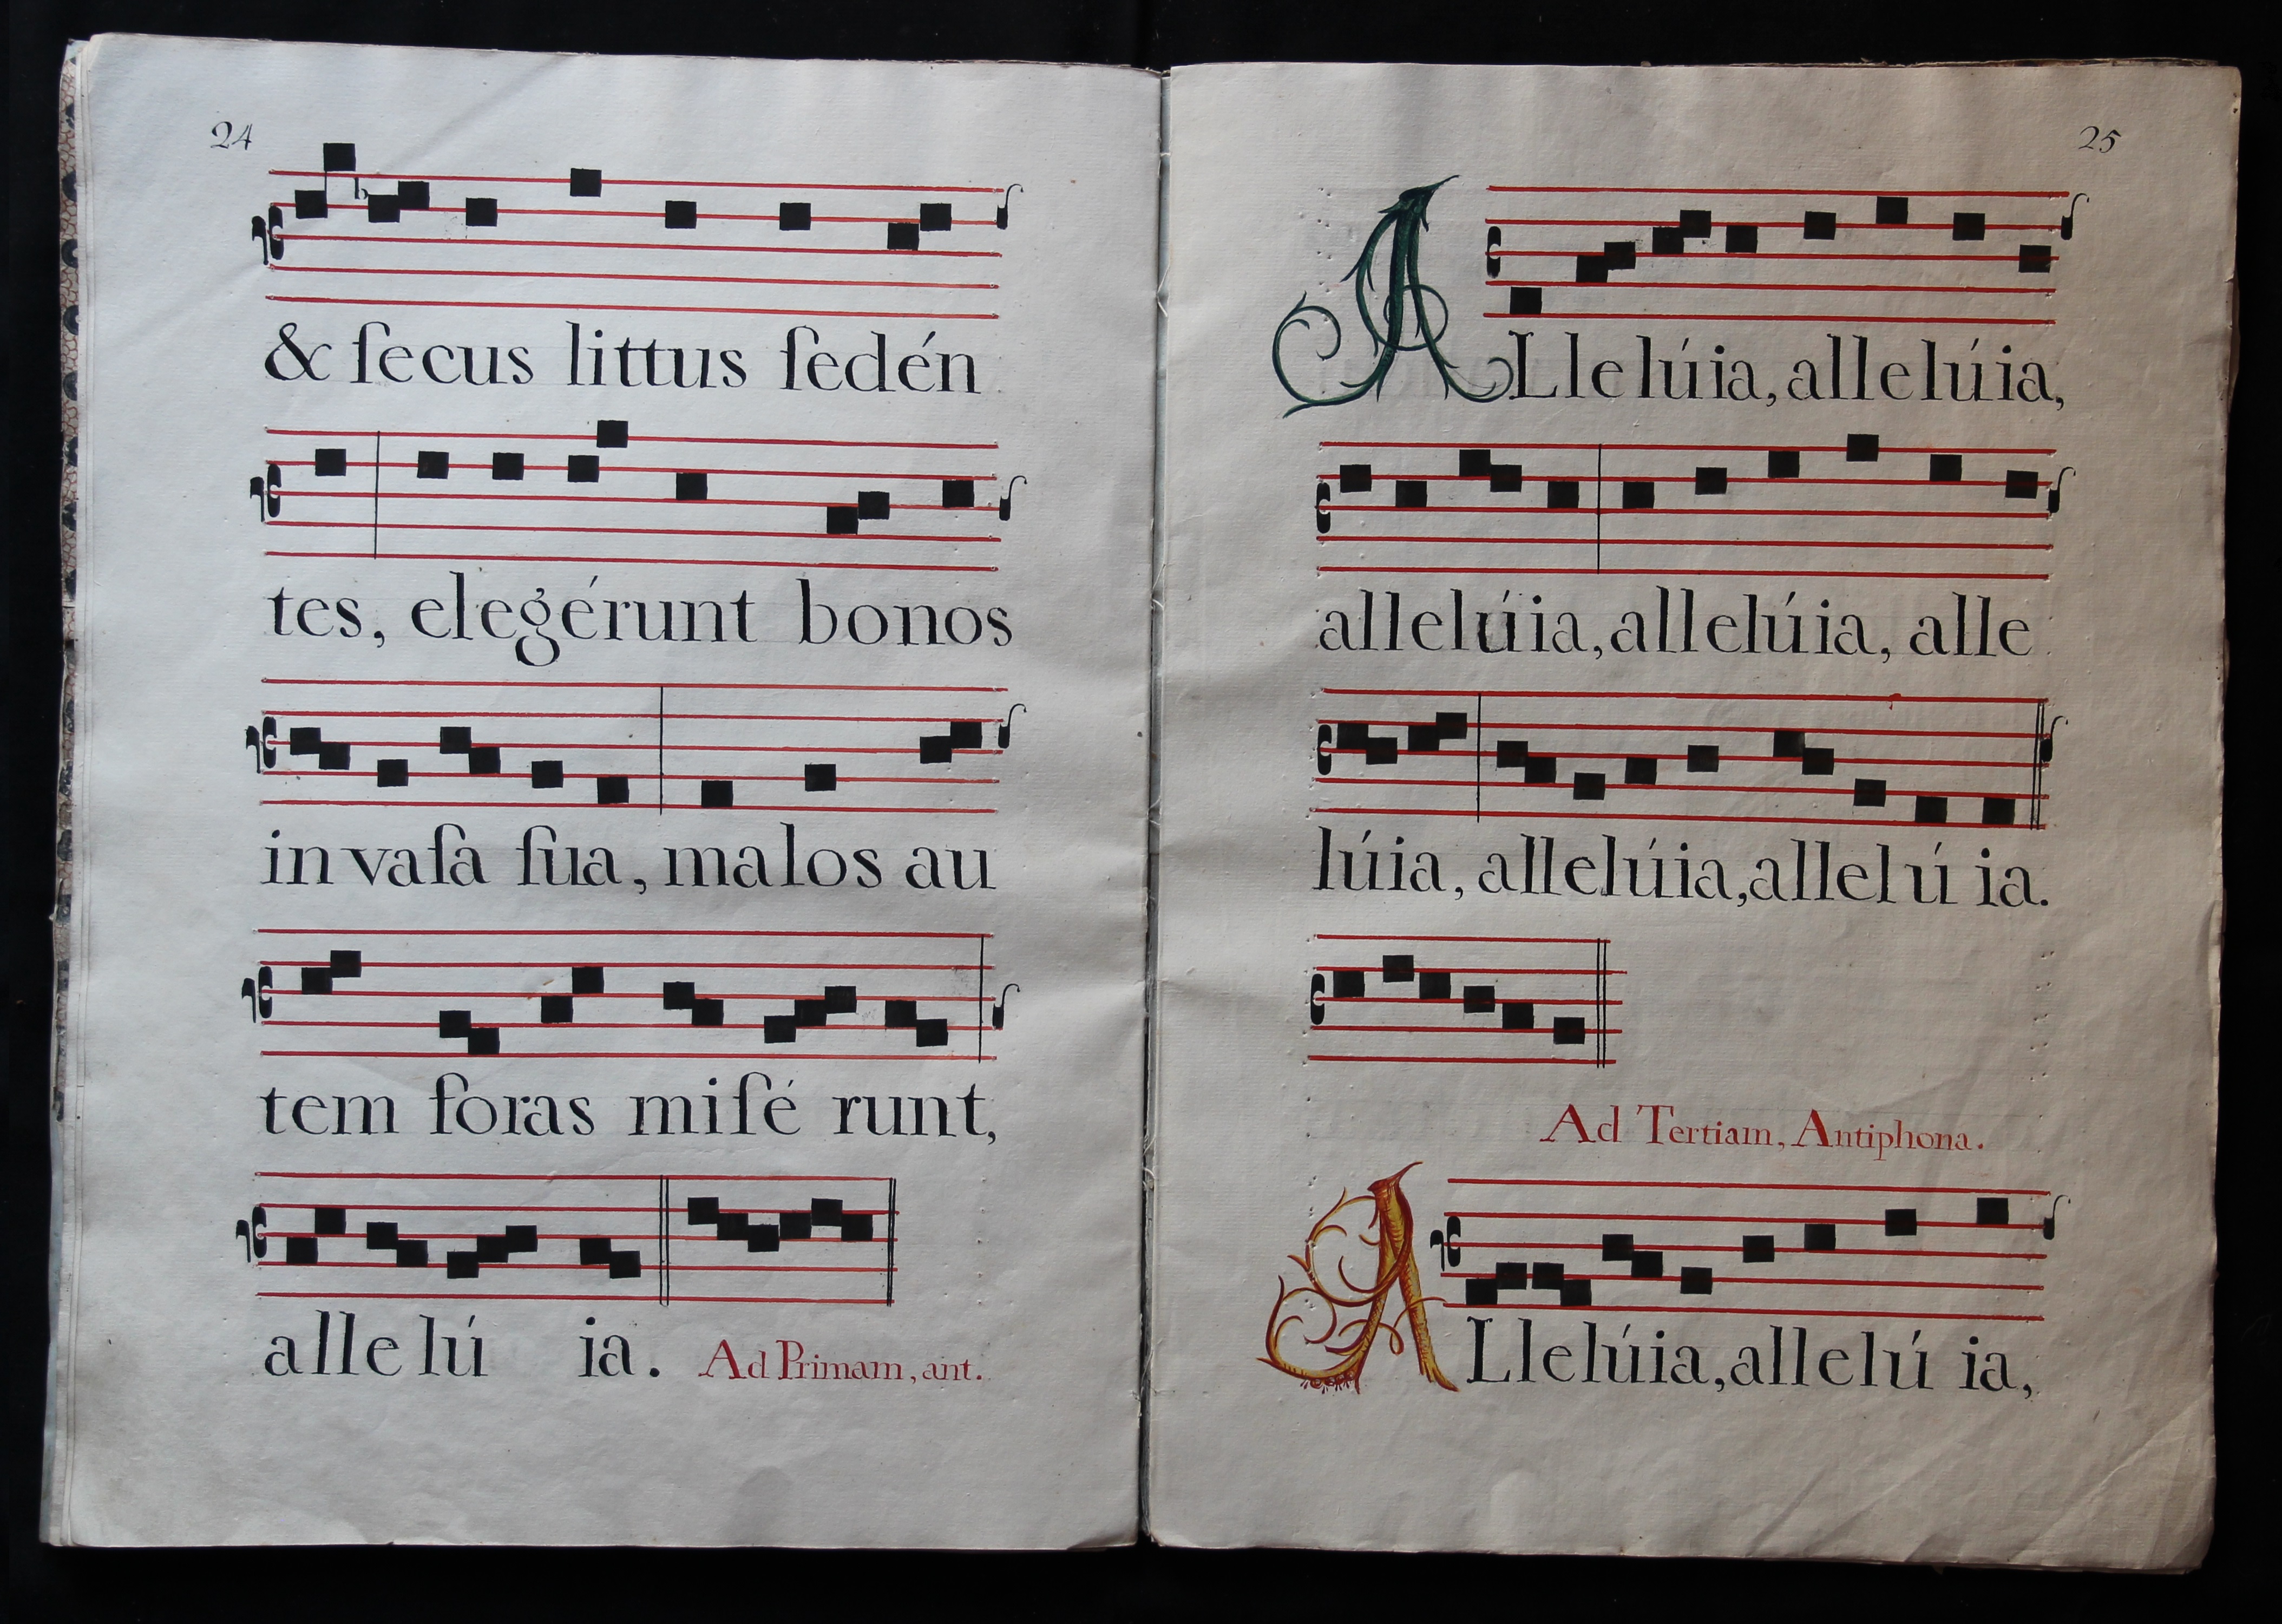 24
& ſecus littus ſedén
tes, elegérunt bonos
in vaſa ſua, malos au
tem foras miſé runt,
alle lú ia. Ad Primam, ant.
25
ALlelúia, allelúia,
allelúia, allelúia, alle
lúia, allelúia, allelú ia.
Ad Tertiam, Antiphona.
ALlelúia, allelú ia,